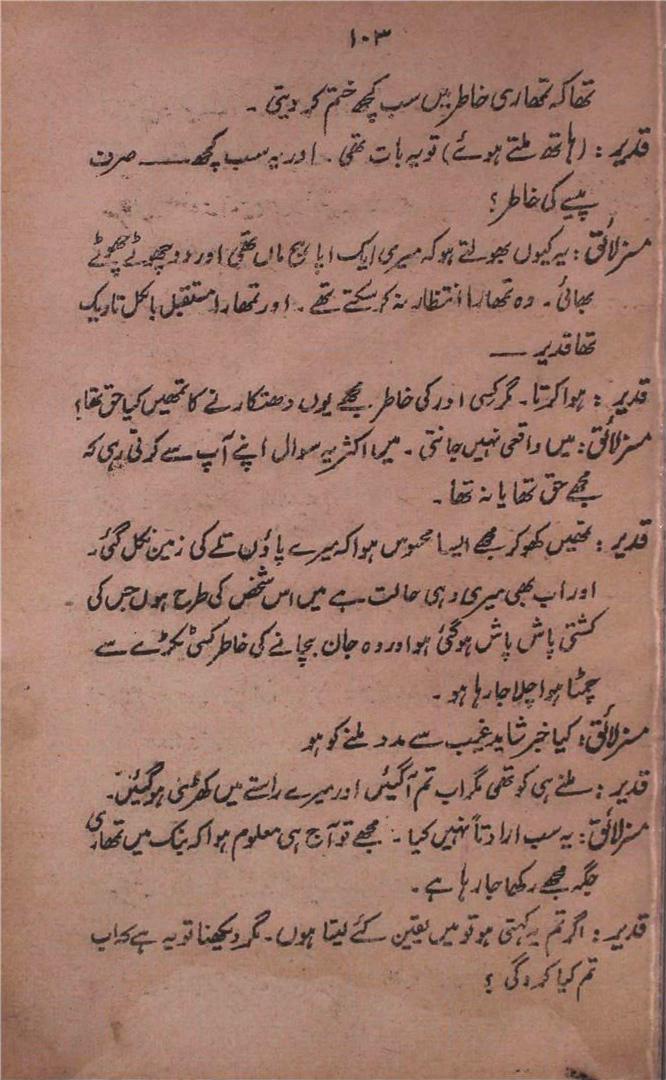 ۱۰۳
تھا کہ تمھاری خاطر میں سب کچھ ختم کر دیتی ۔
قدیر : (ہاتھ ملتے ہوئے) تو یہ بات تھی ۔ اور یہ سب کچھ ــــ صرف
پیسے کی خاطر ؟
مسز لائق : یہ کیوں بھولتے ہو کہ میری ایک اپاہج ماں تھی اور دو چھوٹے چھوٹے
بھائی ۔ وہ تمھارا انتظار نہ کر سکتے تھے ۔ اور تمھارا مستقبل بالکل تاریک
تھا قدیر ــــ
قدیر : ہوا کرتا ۔ مگر کسی اور کی خاطر مجھے یوں دھتکارنے کا تمھیں کیا حق تھا ؟
مسز لائق : میں واقعی نہیں جانتی ۔ میں اکثر یہ سوال اپنے آپ سے کرتی رہی کہ
مجھے حق تھا یا نہ تھا ۔
قدیر : تمھیں کھو کر مجھے ایسا محسوس ہوا کہ میرے پاؤں تلے کی زمین نکل گئی ۔
اور اب بھی میری وہی حالت ہے میں اس شخص کی طرح ہوں جس کی
کشتی پاش پاش ہو گئی ہو اور وہ جان بچانے کی خاطر کسی ٹکڑے سے
چمٹا ہوا چلا جا رہا ہو ۔
مسز لائق : کیا خبر شاید غیب سے مدد ملنے کو ہو
قدیر : ملنے ہی کو تھی مگر اب تم آ گئیں اور میرے راستے میں کھڑی ہو گئیں ۔
مسز لائق : یہ سب ارادتاً نہیں کیا ۔ مجھے تو آج ہی معلوم ہوا کہ بنک میں تمھاری
جگہ مجھے رکھا جا رہا ہے ۔
قدیر : اگر تم یہ کہتی ہو تو میں یقین کئے لیتا ہوں ۔ مگر دیکھنا تو یہ ہے کہ اب
تم کیا کرو گی ؟